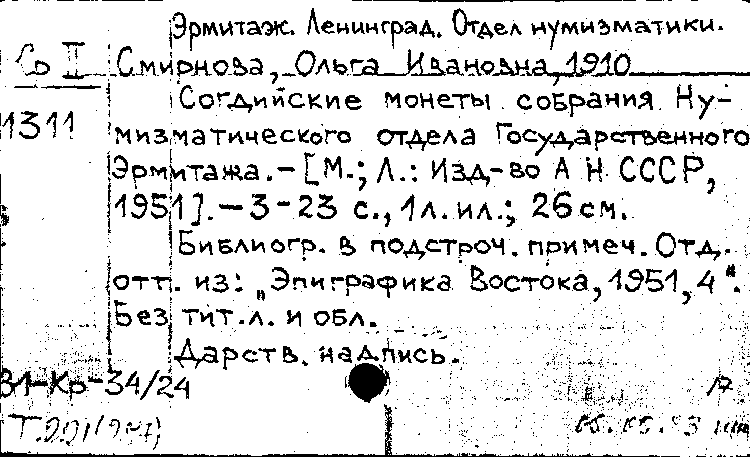 Эрмитаж. Ленинград. Отдел нумизматики.
Со II Смирнова, Ольга Ивановна, 1910
Согдийские монеты собрания Ну-
1311 мизматического отдела Государственного
Эрмитажа. – [М.; Л.: Изд-во АН СССР,
1951]. – 3-23 с., 1 л. ил.; 26 см.
Библиогр. в подстроч. примеч. Отд.
отт. из: „Эпиграфика Востока, 1951, 4".
Без тит. л. и обл.
Дарств. надпись.
31-Кр-34/24